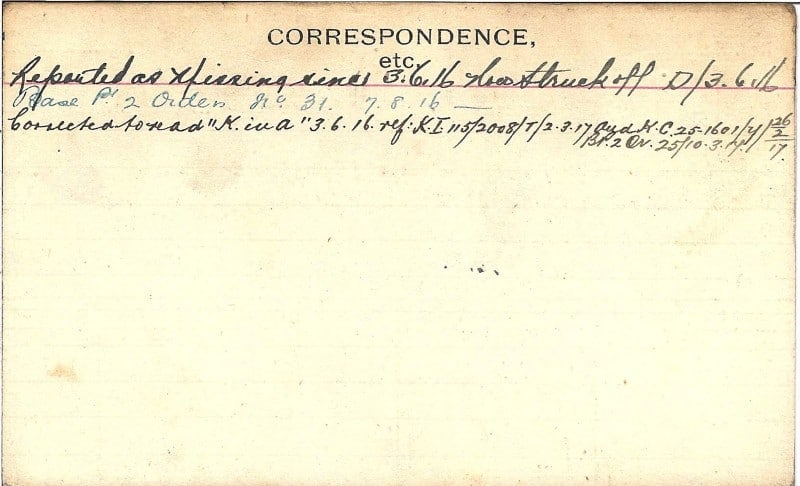 CORRESPONDENCE,
etc.
Reported as Missing since 3.6.16 struck off D/3.6.16
Base Pt 2 Orders No 31. 7.8.16 —
Corrected to read "K. in a" 3.6.16. ref: K.I. 115/2008/T/2.3.17 H.C. 25-1601/4/26/2/17
Pt. 2 Or. 25/10.3.17.